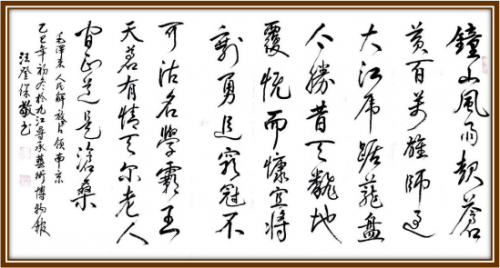 鐘山風雨起蒼
黄百万雄師过
大江虎踞龍盘
今勝昔天翻地
覆慨而慷宜將
剩勇追窮寇不
可沽名學霸王
天若有情天亦老人
间正道是滄桑
毛澤東人民解放军占领南京
年初冬於九江藝術博物館
汪登保敬书